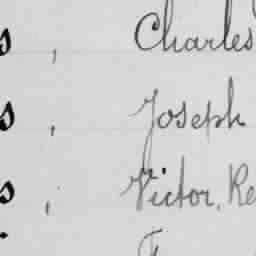 s, Charles
s, Joseph
s, Victor, Re